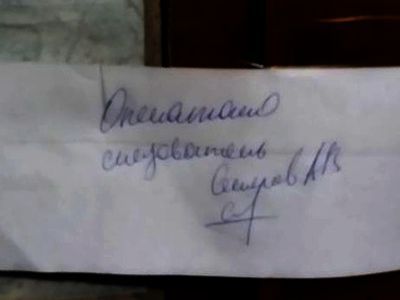 Опечатано
следователь
Семров АВ